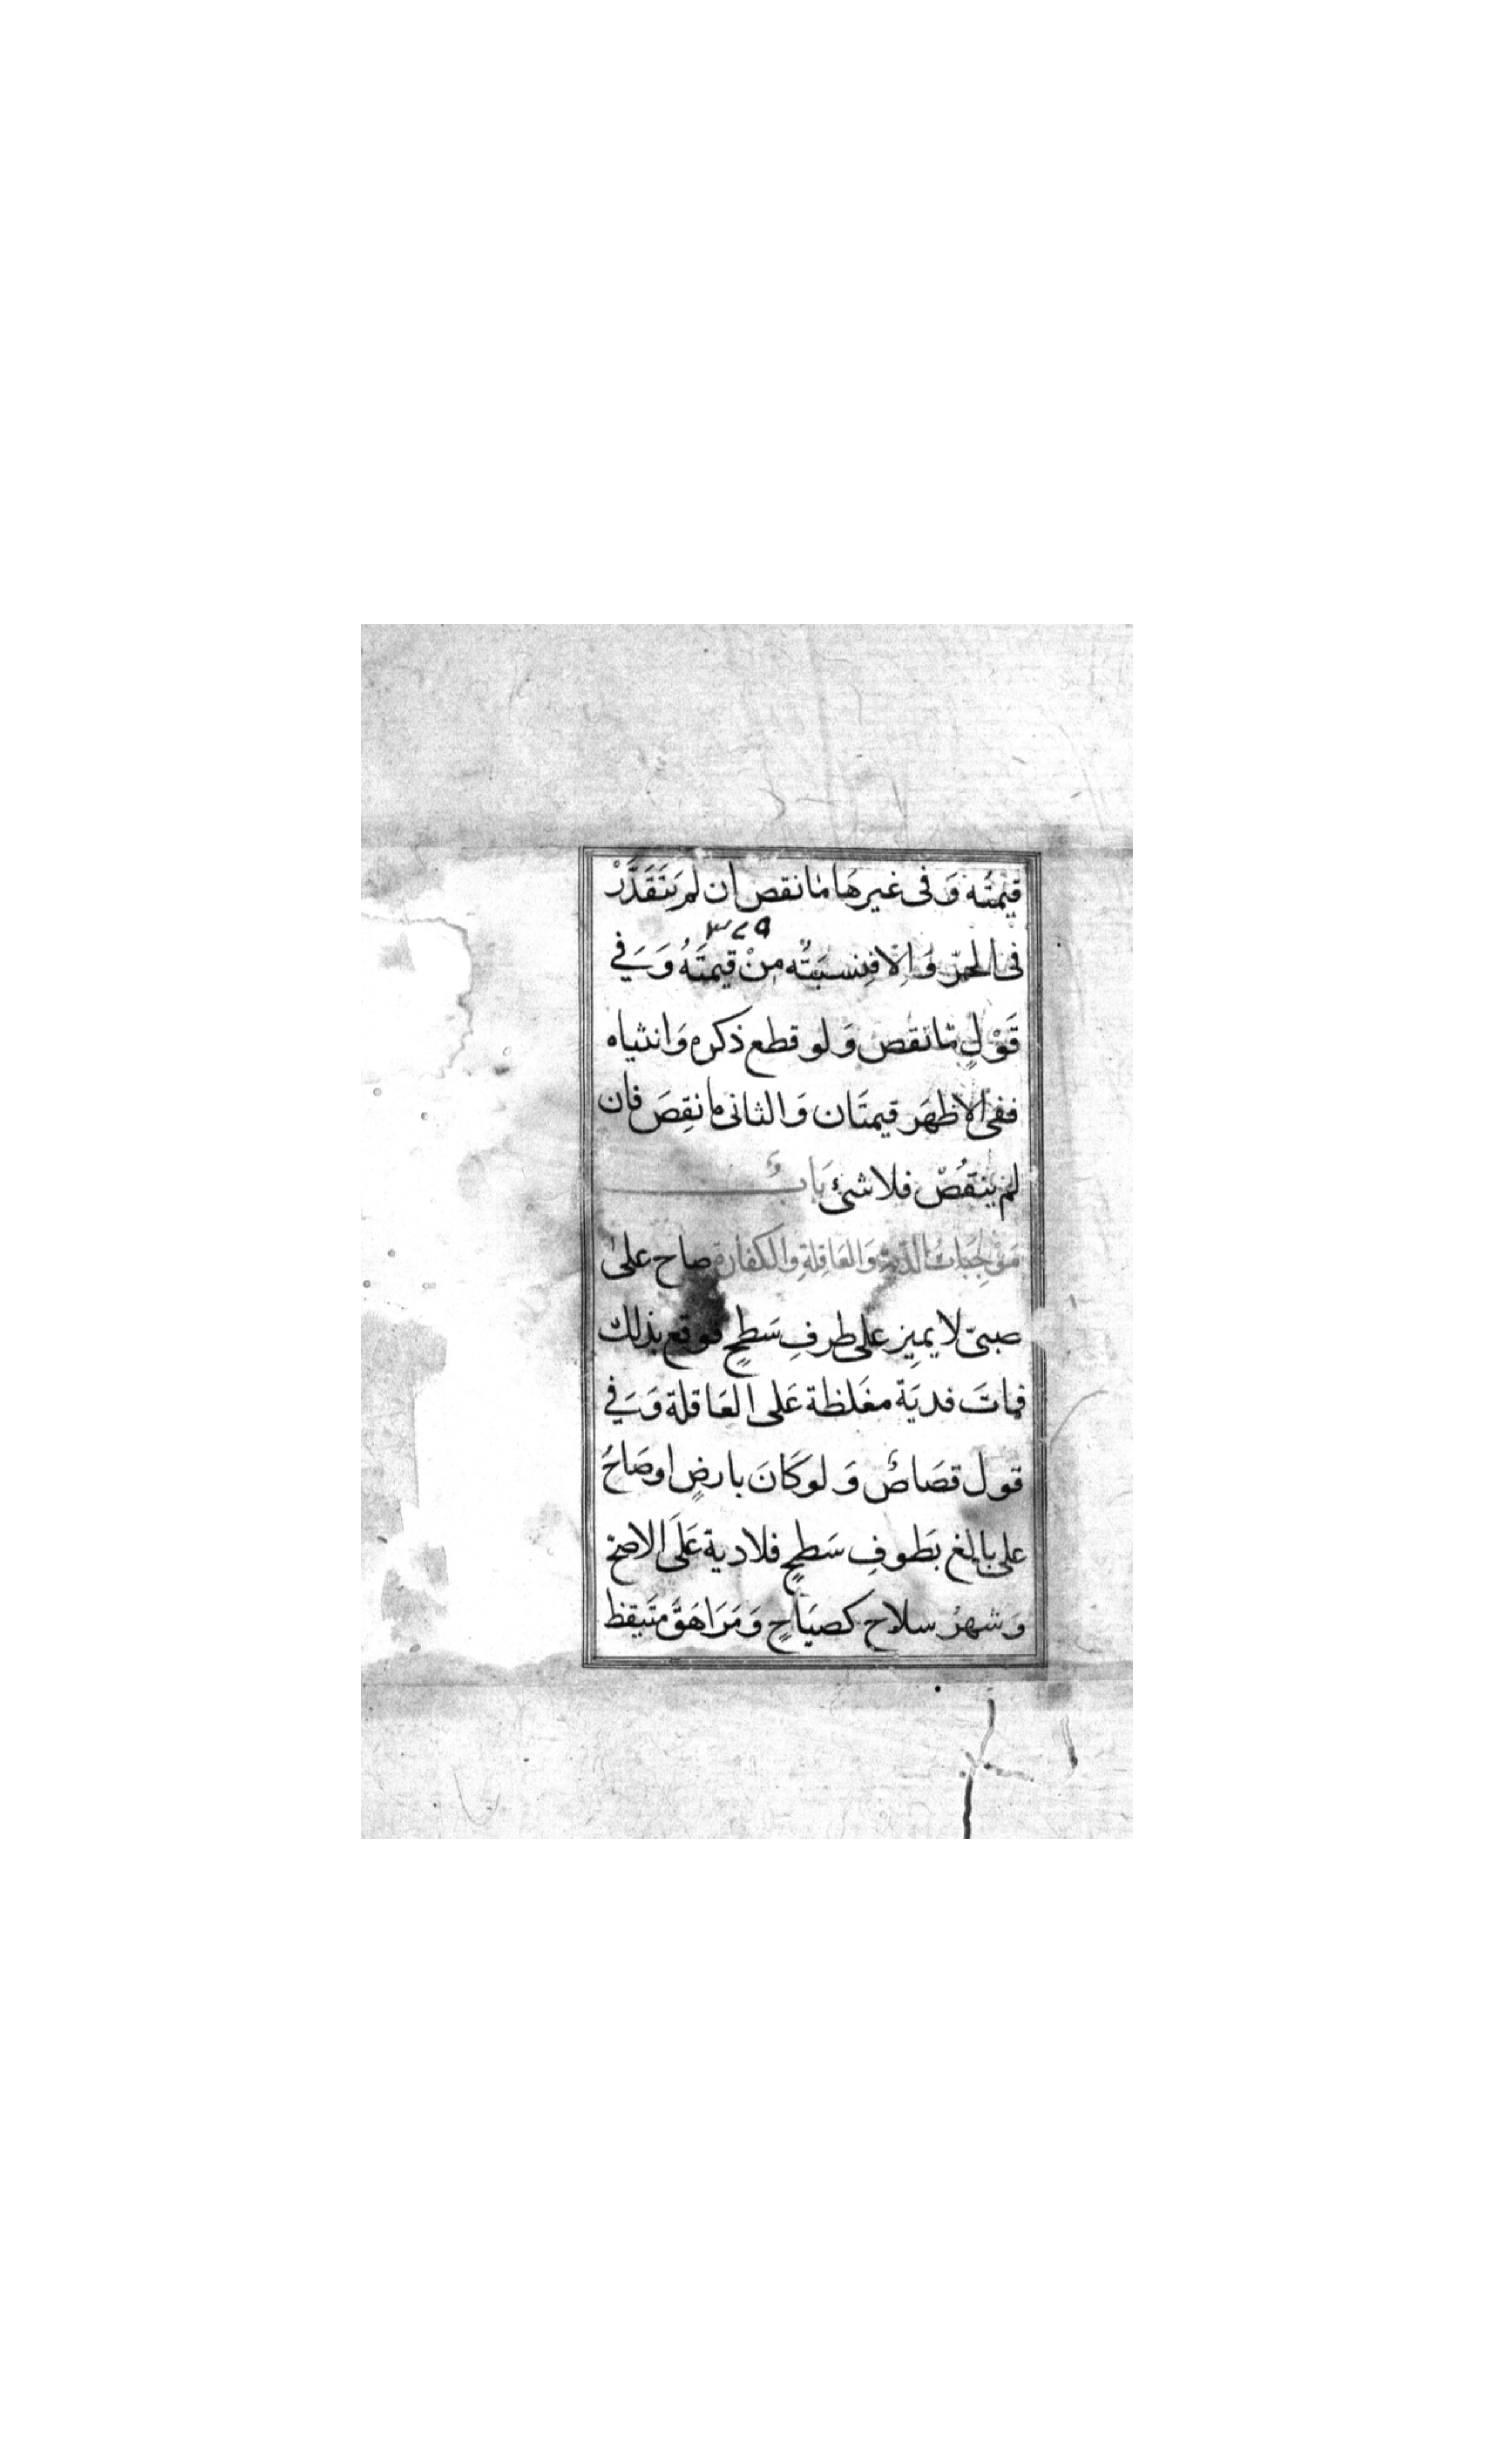 قيمتُه وَفى غيرهَا مَا نقص ان لم يَتَقَدَّرْ
٣٧٩
فى الحرّ وَاِلا فنسبَتُه مِنْ قيمَتهُ وَ وَفي
قَوْلٍ مَا نقص وَلو قطع ذكره وَانثياه
ففى الاظهَر قيمتَان وَالثانى ما نقِصَ فان
لم ينقُصْ فلا شئ بَابٌ
مَوْجِبَاتُ الدّية وَالعَاقِلةِ والكفارة صاح على
صبىّ لا يميِز على طرفِ سَطحٍ فوقع بذلك
فماتَ فديَة مغَلظة عَلى العَاقلة وَ وَفي
قول قصَاصٌ وَلو كَانَ بارضٍ اوصَاحُ
على بالغ بَطوفِ سَطحٍ فلادية عَلَى الاصحّ
وَشهرُ سلاح كصيَاحٍ وَمَرَاهَق متَيقظ